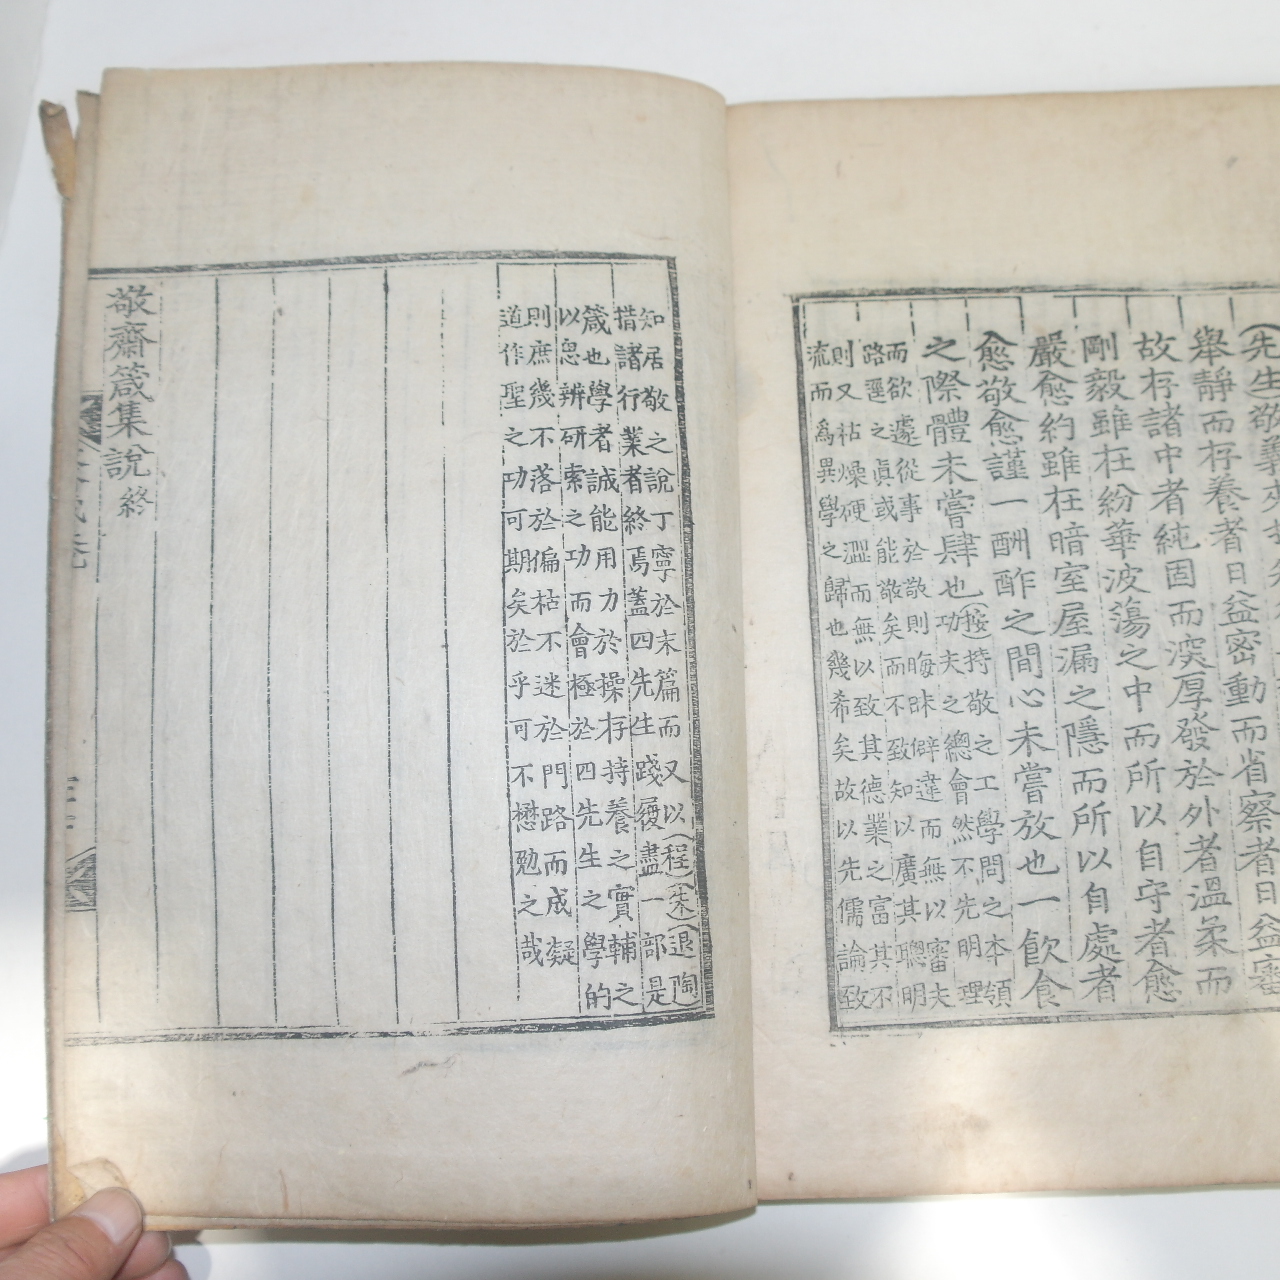 先生敬義夾持
舉靜而存養者日益密動而省察者日益審
故存諸中者純固而深厚發於外者溫柔而
剛毅雖在紛華波蕩之中而所以自守者愈
嚴愈約雖在暗室屋漏之隱而所以自處者
愈敬愈謹一酬酢之間心未嘗放也一飮食
之際體未嘗肆也(按)持敬之工學問之本領
功夫之總會然不先明理
而欲遽從事於敬則晦昧僻違而無以審夫
路逕之眞或能敬矣而不致知以廣其聰明
則又枯燥硬澀而無以致其德業之富其不
流而爲異學之歸也幾希矣故以先儒論致
知居敬之說丁寧於末篇而又以(程)(朱)(退陶)
措諸行業者終焉蓋四先生踐履盡一部是
箴也學者誠能用力於操存持養之實輔之
以思辨硏索之功而會極於四先生之學的
則庶幾不落於偏枯不迷於門路而成凝
道作聖之功可期矣於乎可不懋勉之哉
敬齋箴集說終